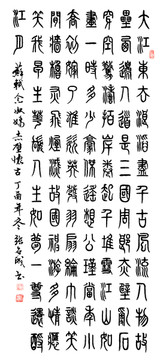 大江東去浪淘盡千古風流人物故
壘西邊人道是三國周郎赤壁亂石
穿空驚濤拍岸捲起千堆雪江山如
畫一時多少豪傑遙想公瑾當年小
喬初嫁了雄姿英發羽扇綸巾談笑
間檣櫓灰飛煙滅故國神遊多情應
笑我早生華髮人生如夢一尊還酹
江月 蘇軾念奴嬌赤壁懷古 丁酉年冬 書